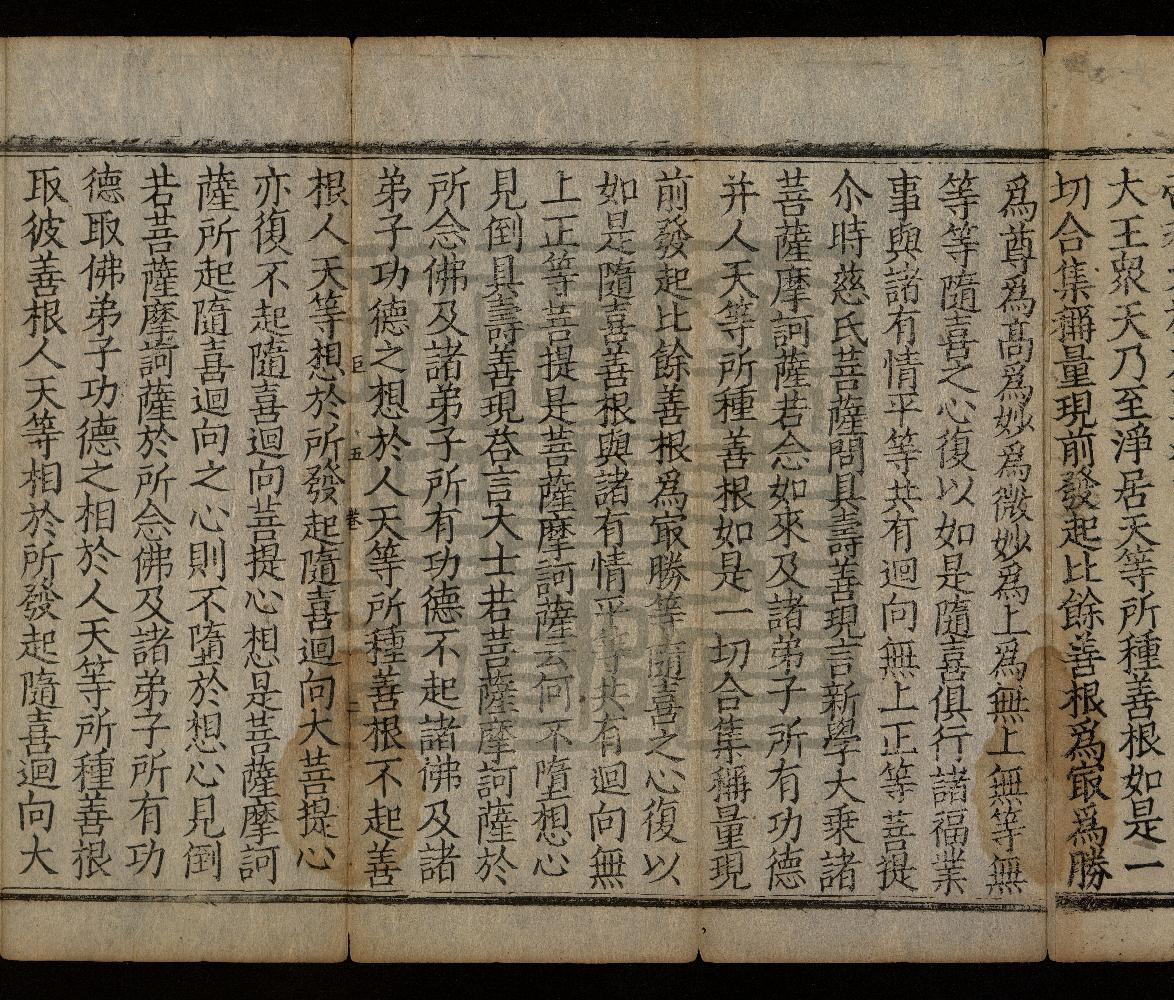 大王衆天乃至淨居天等所種善根如是一
切合集稱量現前發起比餘善根爲冣爲勝
爲尊爲髙爲妙爲微妙爲上爲無上無等無
等等隨喜之心復以如是隨喜俱行諸福業
事與諸有情平等共有迴向無上正等菩提
尒時慈氏菩薩問具壽善現言新學大乗諸
菩薩摩訶薩若念如來及諸弟子所有功德
并人天等所種善根如是一切合集稱量現
前發起比餘善根爲冣勝等隨喜之心復以
如是隨喜善根與諸有情平等共有迴向無
上正等菩提是菩薩摩訶薩云何不墮想心
見倒具壽善現荅言大士若菩薩摩訶薩於
所念佛及諸弟子所有功德不起諸佛及諸
弟子功德之想於人天等所種善根不起善
巨 五 卷 二
根人天等想於所發起隨喜迴向大菩提心
亦復不起隨喜迴向菩提心想是菩薩摩訶
薩所起隨喜迴向之心則不墮於想心見倒
若菩薩摩訶薩於所念佛及諸弟子所有功
德取佛弟子功德之相於人天等所種善根
取彼善根人天等相於所發起隨喜迴向大